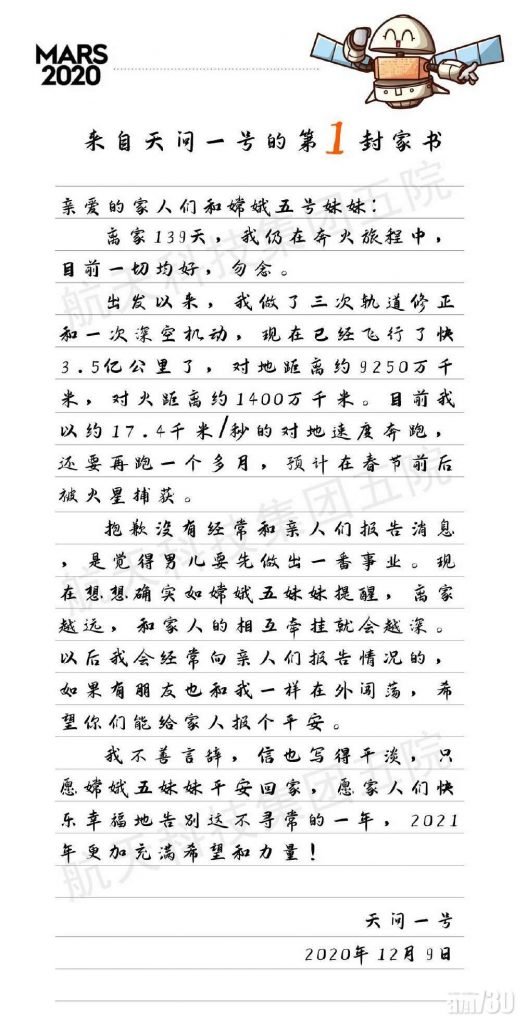 MARS
2020
来自天问一号的第1封家书
亲爱的家人们和嫦娥五号妹妹：
离家139天，我仍在奔火旅程中，
目前一切均好，勿念。
出发以来，我做了三次轨道修正
和一次深空机动，现在已经飞行了快
3.5亿公里了，对地距离约9250万千
米，对火距离约1400万千米。目前我
以约17.4千米/秒的对地速度奔跑，
还要再跑一个多月，预计在春节前后
被火星捕获。
抱歉没有经常和亲人们报告消息
，是觉得男儿要先做出一番事业。现
在想想确实如嫦娥五妹妹提醒，离家
越远，和家人的相互牵挂就会越深。
以后我会经常向亲人们报告情况的，
如果有朋友也和我一样在外闯荡，希
望你们能给家人报个平安。
我不善言辞，信也写得平淡，只
愿嫦娥五妹妹平安回家，愿家人们快
乐幸福地告别这不寻常的一年，2021
年更加充满希望和力量！
天问一号
2020年12月9日
航天科技集团五院
航天科技集团五院
航天科技集团五院
am730